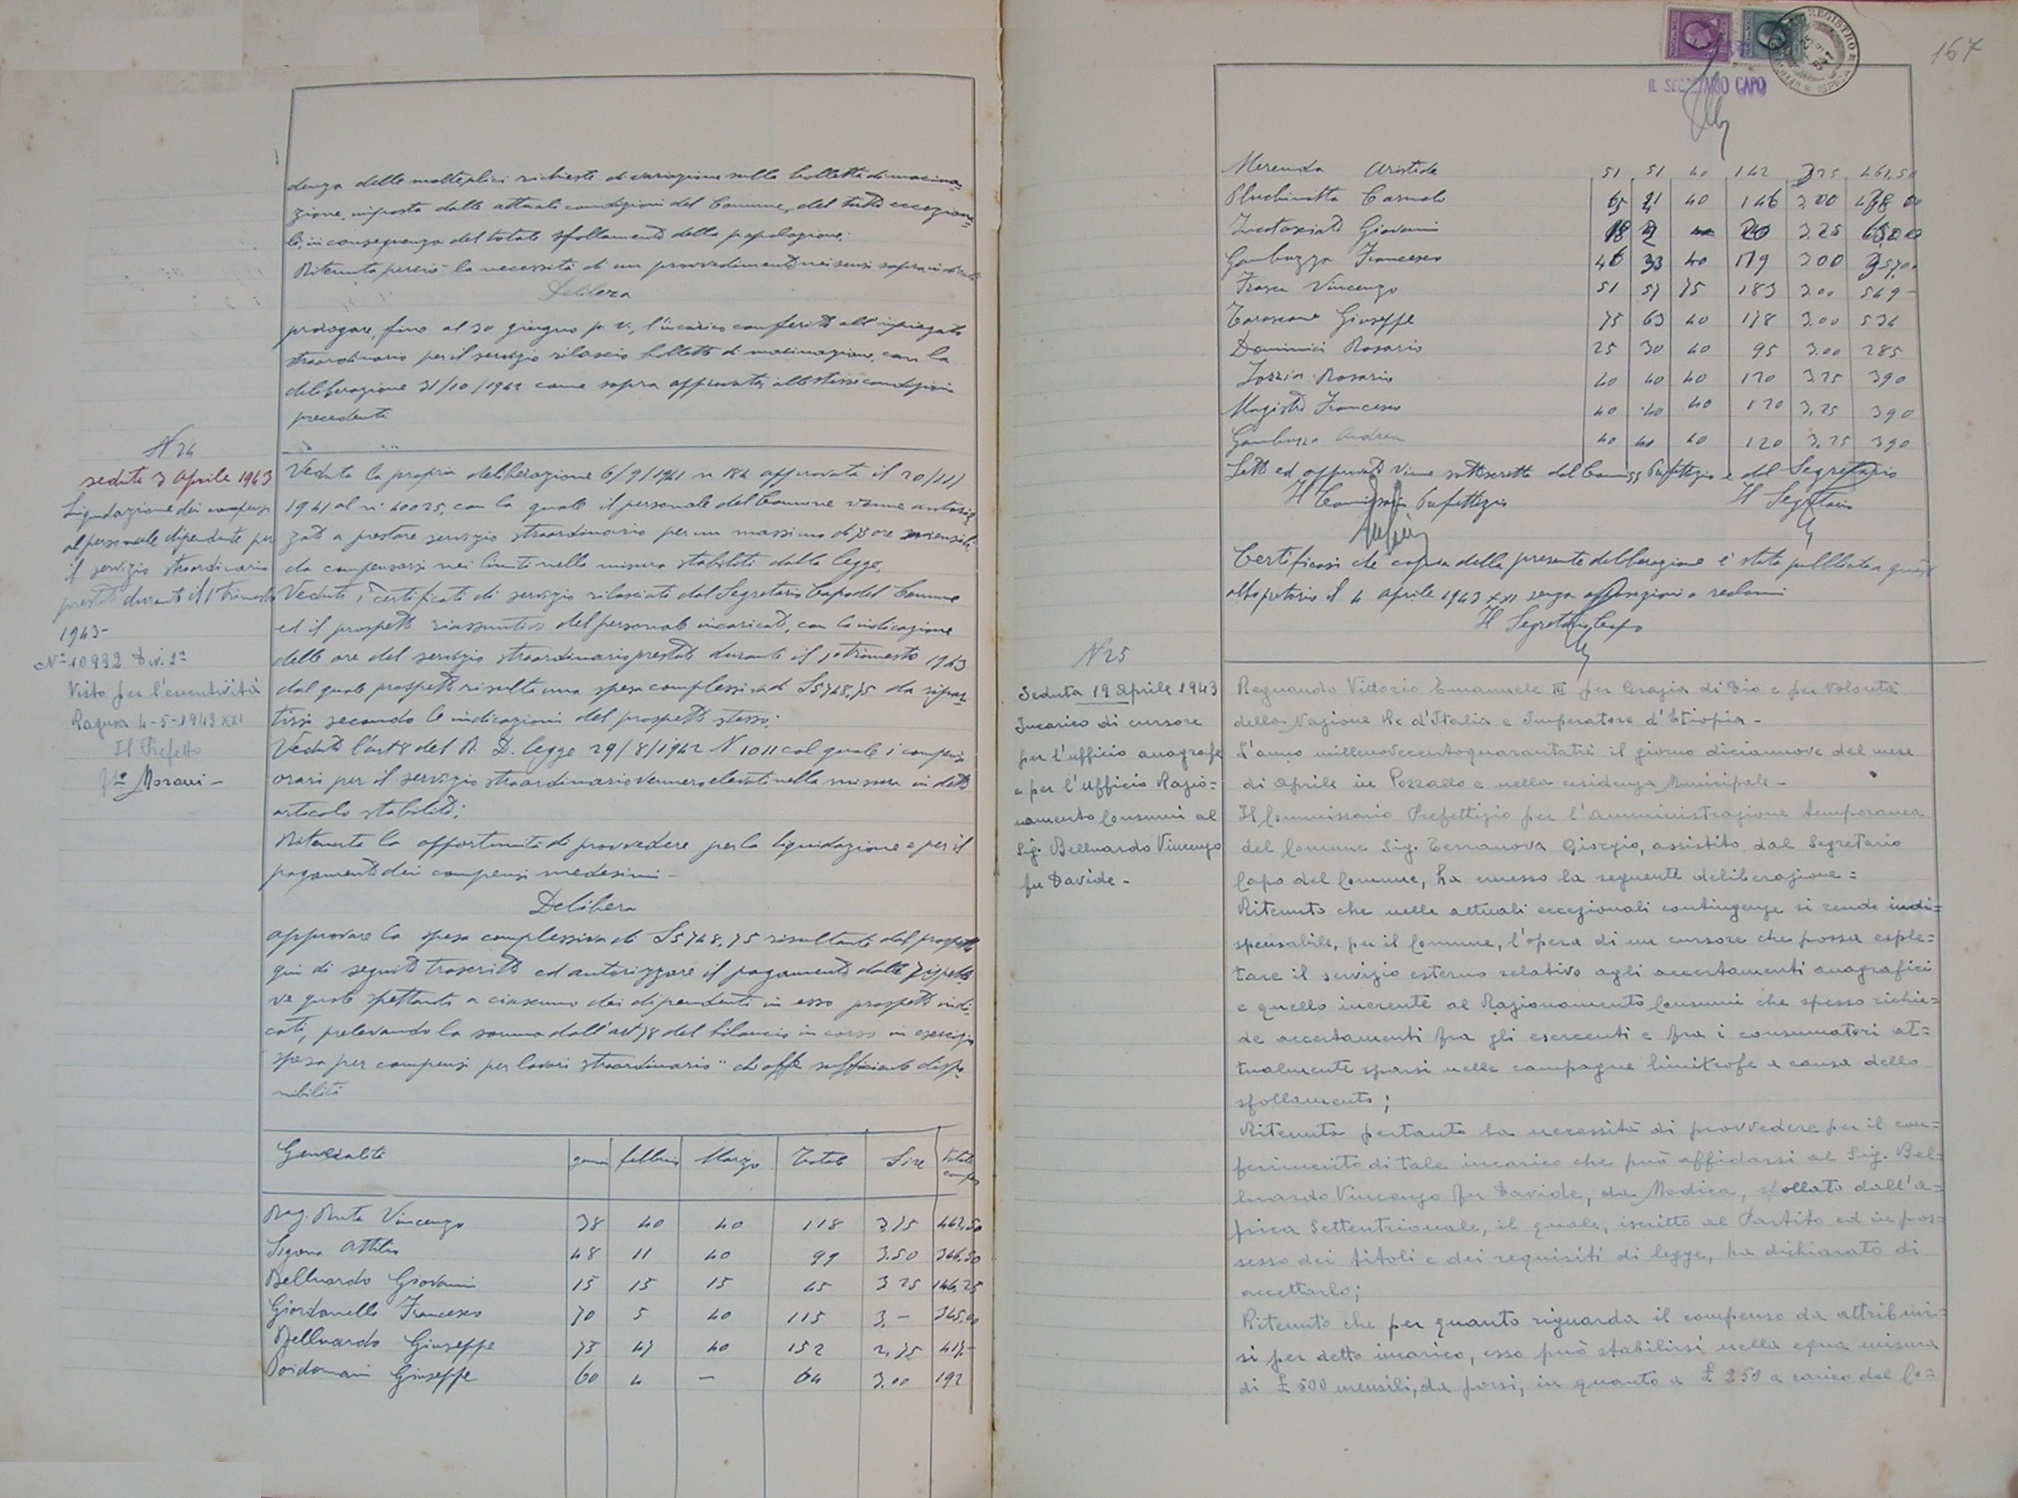 denza delle molteplici richieste di variazione sulle bollette di macina=
zione, imposta dalle attuali condizioni del Comune, del tutto eccezion=
li, in conseguenza del totale sfollamento della popolazione;
Ritenuta perciò la necessità di un provvedimento nei sensi sopra indicati
Delibera
prorogare, fino al 30 giugno p. v., l'incarico conferito all'impiegato
straordinario per il servizio rilascio bollette di macinazione, con la
deliberazione 31/10/1942 come sopra approvata, alle stesse condizioni
precedenti
N 24
seduta 3 Aprile 1943
Liquidazione dei compensi
al personale dipendente per
il servizio straordinario
prestato durante il 1° Trimestre
1943-
N° 10992 Div. 2ª
Visto per l'esecutività
Ragusa 4-5-1943 XXI
Il Prefetto
Fto Moravi -
Veduta la propria deliberazione 6/9/1941 n 184 approvata il 20/11/
1941 al n° 40025, con la quale il personale del Comune venne autoriz
zato a prestare servizio straordinario per un massimo di 75 ore mensili,
da compensarsi nei limiti nella misura stabiliti dalla legge.
Veduti i certificati di servizio rilasciati dal Segretario Capo del Comune
ed il prospetto riassuntivo del personale incaricato, con la indicazione
delle ore del servizio straordinario prestato durante il 1° trimestre 1943
dal quale prospetto risulta una spesa complessiva di £ 5748,75 da ripar=
tirsi secondo le indicazioni del prospetto stesso;
Veduto l'art 8 del R. D. legge 29/8/1942 N 1011 col quale i compensi
orari per il servizio straordinario vennero elevati nella misura in detto
articolo stabilito;
Ritenuta la opportunità di provvedere per la liquidazione e per il
pagamento dei compensi medesimi -
Delibera
approvare la spesa complessiva di £ 5748,75 risultante dal prospetto
qui di seguito trascritto ed autorizzare il pagamento delle rispetti
ve quote spettanti a ciascuno dei dipendenti in esso prospetto indi=
cati, prelevando la somma dall'art 78 del bilancio in corso in esercizio
spesa per compensi per lavori straordinario" che offre sufficiente dispo=
nibilità
Generalità genn febbraio Marzo Totale Lire Totale comp
Rag. Ruta Vincenzo 38 40 40 118 3,75 442,50
Sigona Attilio 48 11 40 99 3.50 346,50
Belluardo Giovanni 15 15 15 45 3 25 146,25
Giordanella Francesco 70 5 40 115 3,- 345,00
Belluardo Giuseppe 75 47 40 152 2,75 417-
Poidomani Giuseppe 60 4 - 64 3.00 192
167
IL SEGRETARIO CAPO
Merenda Aristide 51 51 40 142 3,25 461,50
Pluchinotta Carmelo 65 41 40 146 3,00 438 00
Giovanni 18 2 20 3.25 65,00
Gambuzza Francesco 46 33 40 119 3 00 357,00
Frasca Vincenzo 51 57 75 183 3.00 549-
Tarascone Giuseppe 75 63 40 178 3.00 534
Dominici Rosario 25 30 40 95 3.00 285
Rosario 40 40 40 120 3.25 390
Magistro Francesco 40 40 40 120 3,25 390
Gambuzza Andrea 40 40 40 120 3.25 390
Letto ed approvato viene sottoscritto dal Comiss Prefettizio e del Segretario
Il Comissario Prefettizio Il Segretario
Certificasi che copia della presente deliberazione è stata pubblicata a questo
albo pretorio il 4 Aprile 1943 XXI senza opposizioni o reclami
Il Segretario Capo
N 25
Seduta 19 Aprile 1943
Incarico di cursore
per l'ufficio anagrafe
e per l'Ufficio Razio=
namento Consumi al
Sig. Belluardo Vincenzo
fu Davide -
Regnando Vittorio Emanuele III per Grazia di Dio e per Volontà
della Nazione Re d'Italia e Imperatore d'Etiopia -
L'anno millenovecentoquarantatrè il giorno diciannove del mese
di Aprile in Pozzallo e nella residenza Municipale -
Il Commissario Prefettizio per l'amministrazione temporanea
del Comune Sig. Terranova Giorgio, assistito dal Segretario
Capo del Comune, ha emesso la seguente deliberazione:
Ritenuto che nelle attuali eccezionali contingenze si rende indi=
spensabile, per il Comune, l'opera di un cursore che possa esple=
tare il servizio esterno relativo agli accertamenti anagrafici
e quello inerente al Razionamento Consumi che spesso richie=
de accertamenti fra gli esercenti e fra i consumatori at=
tualmente sparsi nelle campagne limitrofe a causa dello
sfollamento;
Ritenuta pertanto la necessità di provvedere per il con=
ferimento di tale incarico che può affidarsi al Sig. Bel=
luardo Vincenzo fu Davide, da Modica, sfollato dall'A=
frica Settentrionale, il quale, iscritto al Partito ed in pos=
sesso dei titoli e dei requisiti di legge, ha dichiarato di
accettarlo;
Ritenuto che per quanto riguarda il compenso da attribuir=
si per detto incarico, esso può stabilirsi nella equa misura
di £ 500 mensili, da porsi, in quanto a £ 250 a carico del Co=